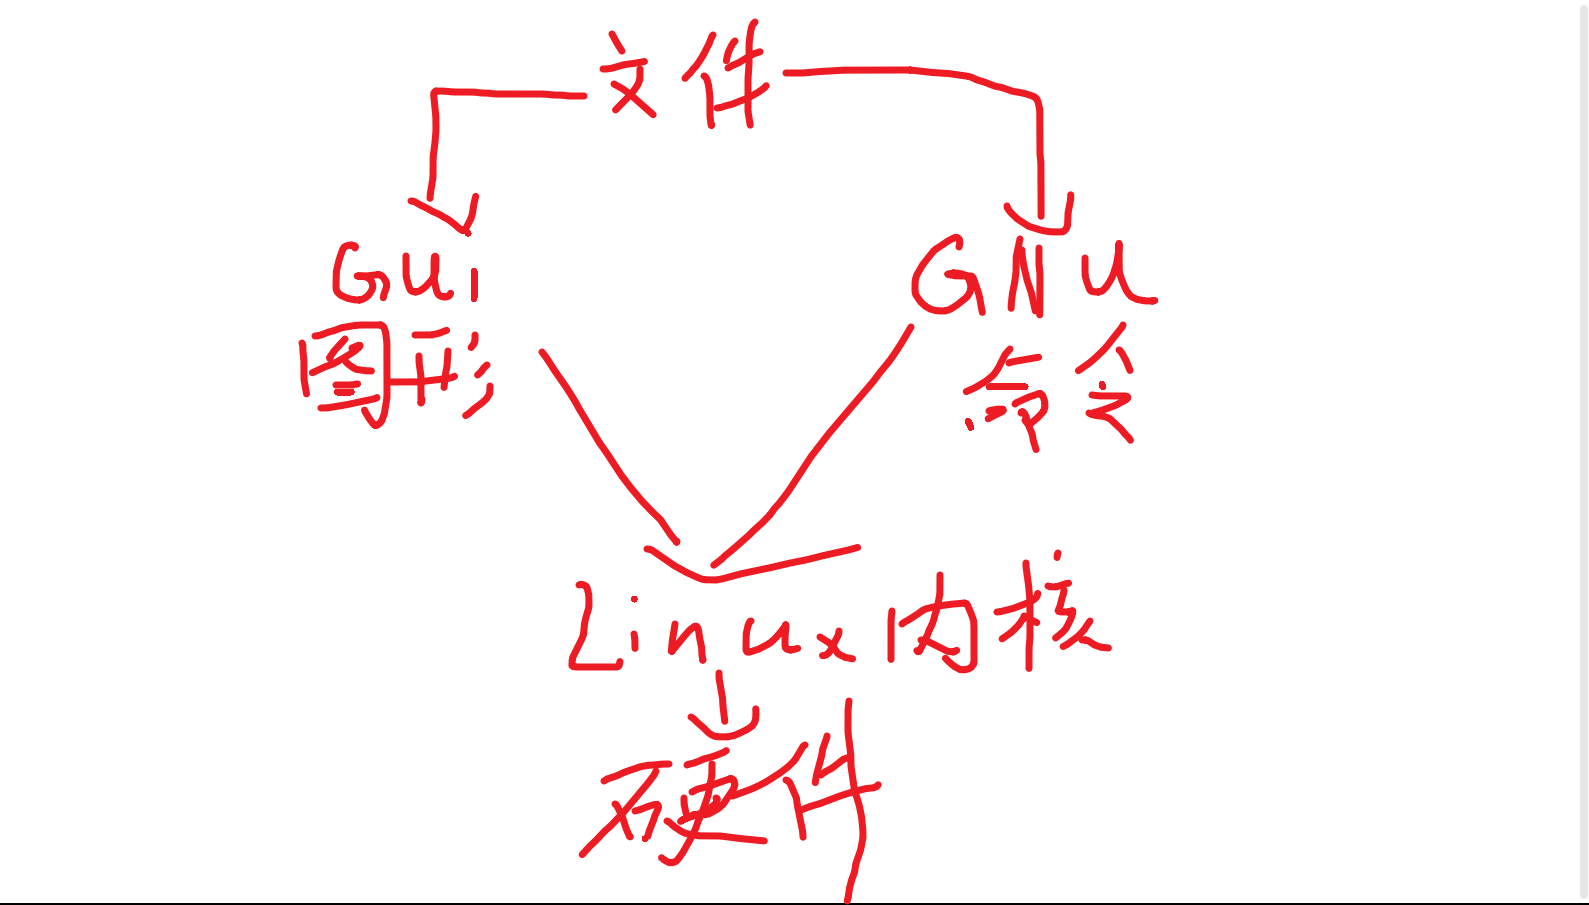 文件
Gui
图形
GNU
命令
Linux内核
硬件